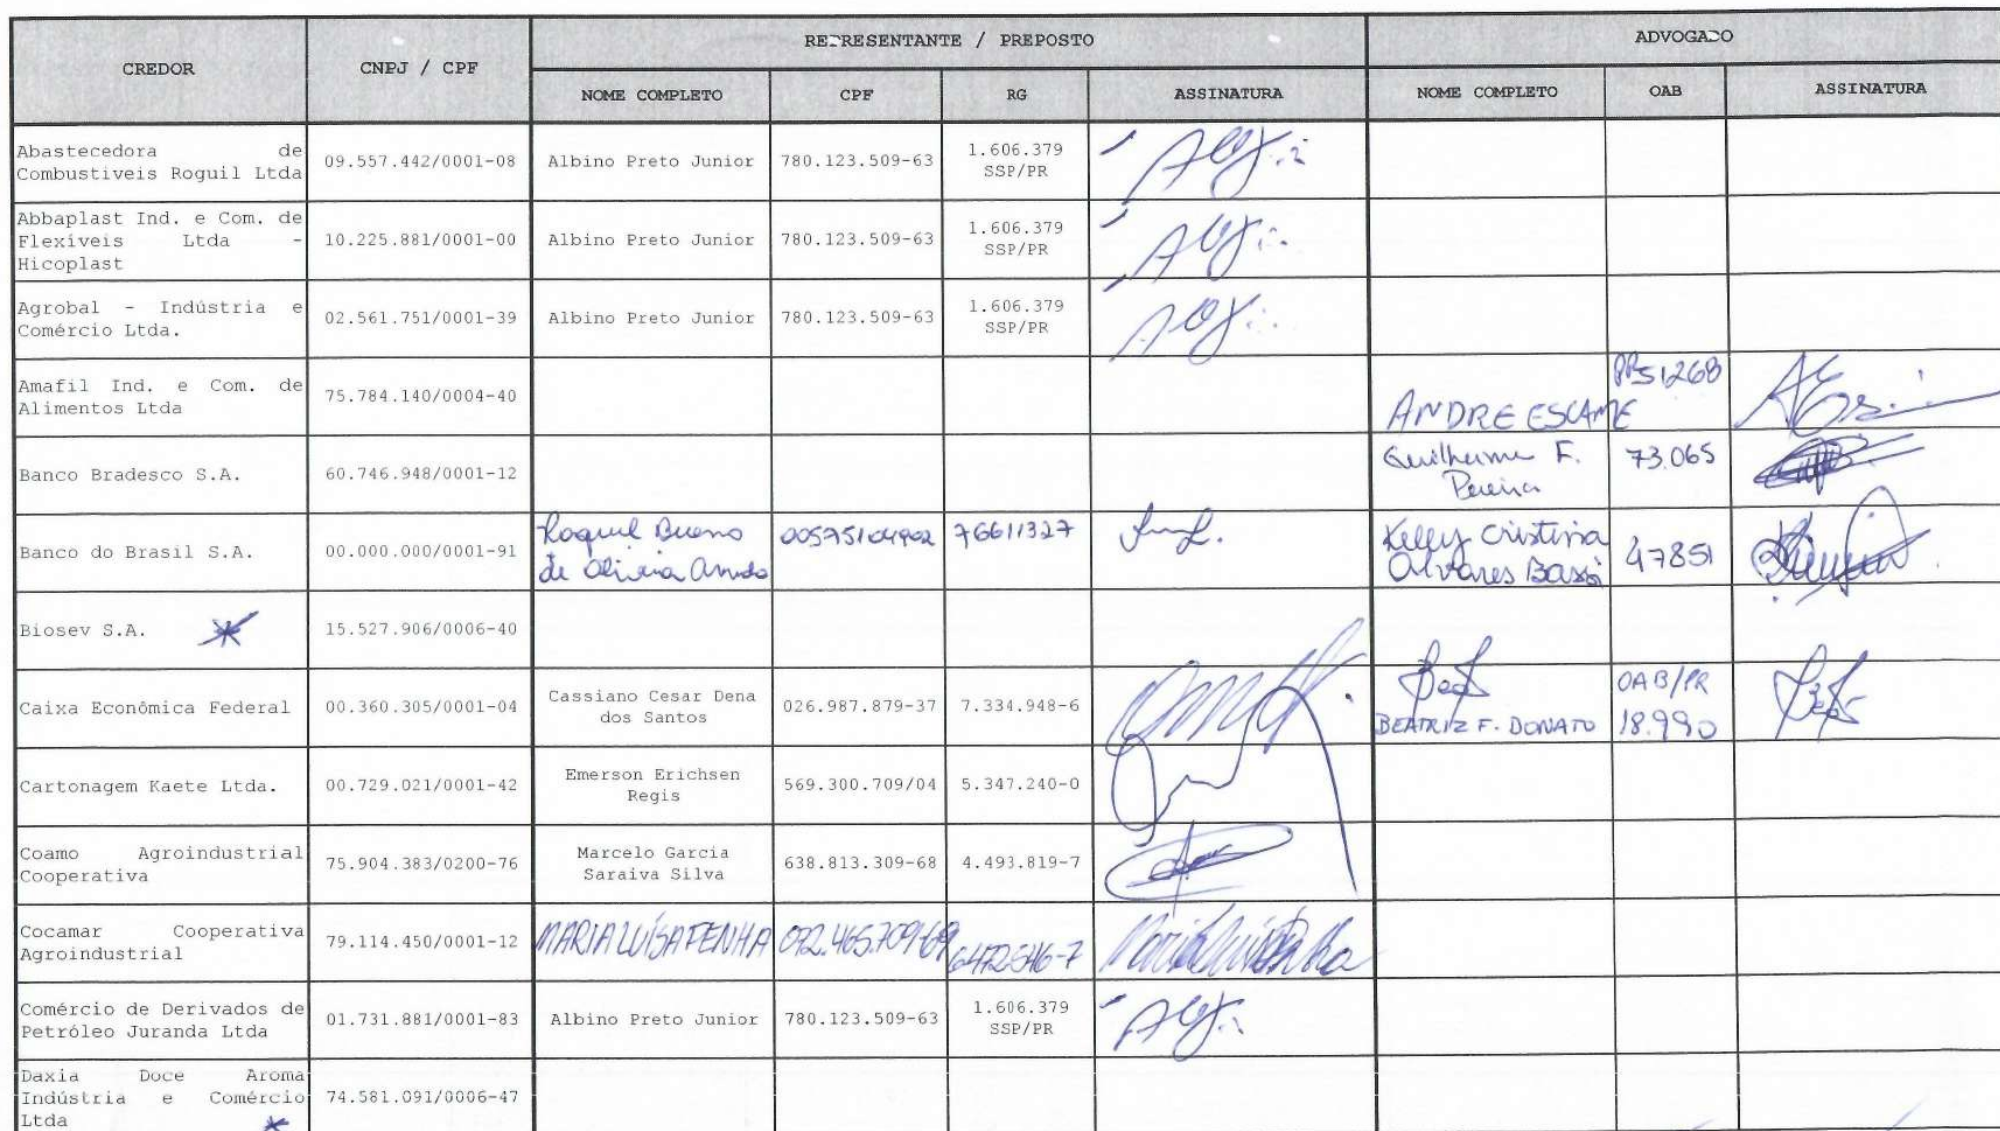 REPRESENTANTE / PREPOSTO
ADVOGADO
CREDOR
CNPJ / CPF
NOME COMPLETO
CPF
RG
ASSINATURA
NOME COMPLETO
OAB
ASSINATURA
Abastecedora de
Combustiveis Roguil Ltda
09.557.442/0001-08
Albino Preto Junior
780.123.509-63
1.606.379
SSP/PR
Abbaplast Ind. e Com. de
Flexíveis Ltda -
Hicoplast
10.225.881/0001-00
Albino Preto Junior
780.123.509-63
1.606.379
SSP/PR
Agrobal - Indústria e
Comércio Ltda.
02.561.751/0001-39
Albino Preto Junior
780.123.509-63
1.606.379
SSP/PR
Amafil Ind. e Com. de
Alimentos Ltda
75.784.140/0004-40
ANDRE ESCAME
PR51268
Banco Bradesco S.A.
60.746.948/0001-12
Guilherme F.
Pereira
73.065
Banco do Brasil S.A.
00.000.000/0001-91
Raquel Bueno
de Oliveira
76611327
Kelly Cristina
Alvares
47851
Biosev S.A.
15.527.906/0006-40
Caixa Econômica Federal
00.360.305/0001-04
Cassiano Cesar Dena
dos Santos
026.987.879-37
7.334.948-6
BEATRIZ F. DONATO
OAB/PR
18.990
Cartonagem Kaete Ltda.
00.729.021/0001-42
Emerson Erichsen
Regis
569.300.709/04
5.347.240-0
Coamo Agroindustrial
Cooperativa
75.904.383/0200-76
Marcelo Garcia
Saraiva Silva
638.813.309-68
4.493.819-7
Cocamar Cooperativa
Agroindustrial
79.114.450/0001-12
MARIA LUÍSA PENHA
072.465.709-69
Comércio de Derivados de
Petróleo Juranda Ltda
01.731.881/0001-83
Albino Preto Junior
780.123.509-63
1.606.379
SSP/PR
Daxia Doce Aroma
Indústria e Comércio
Ltda
74.581.091/0006-47